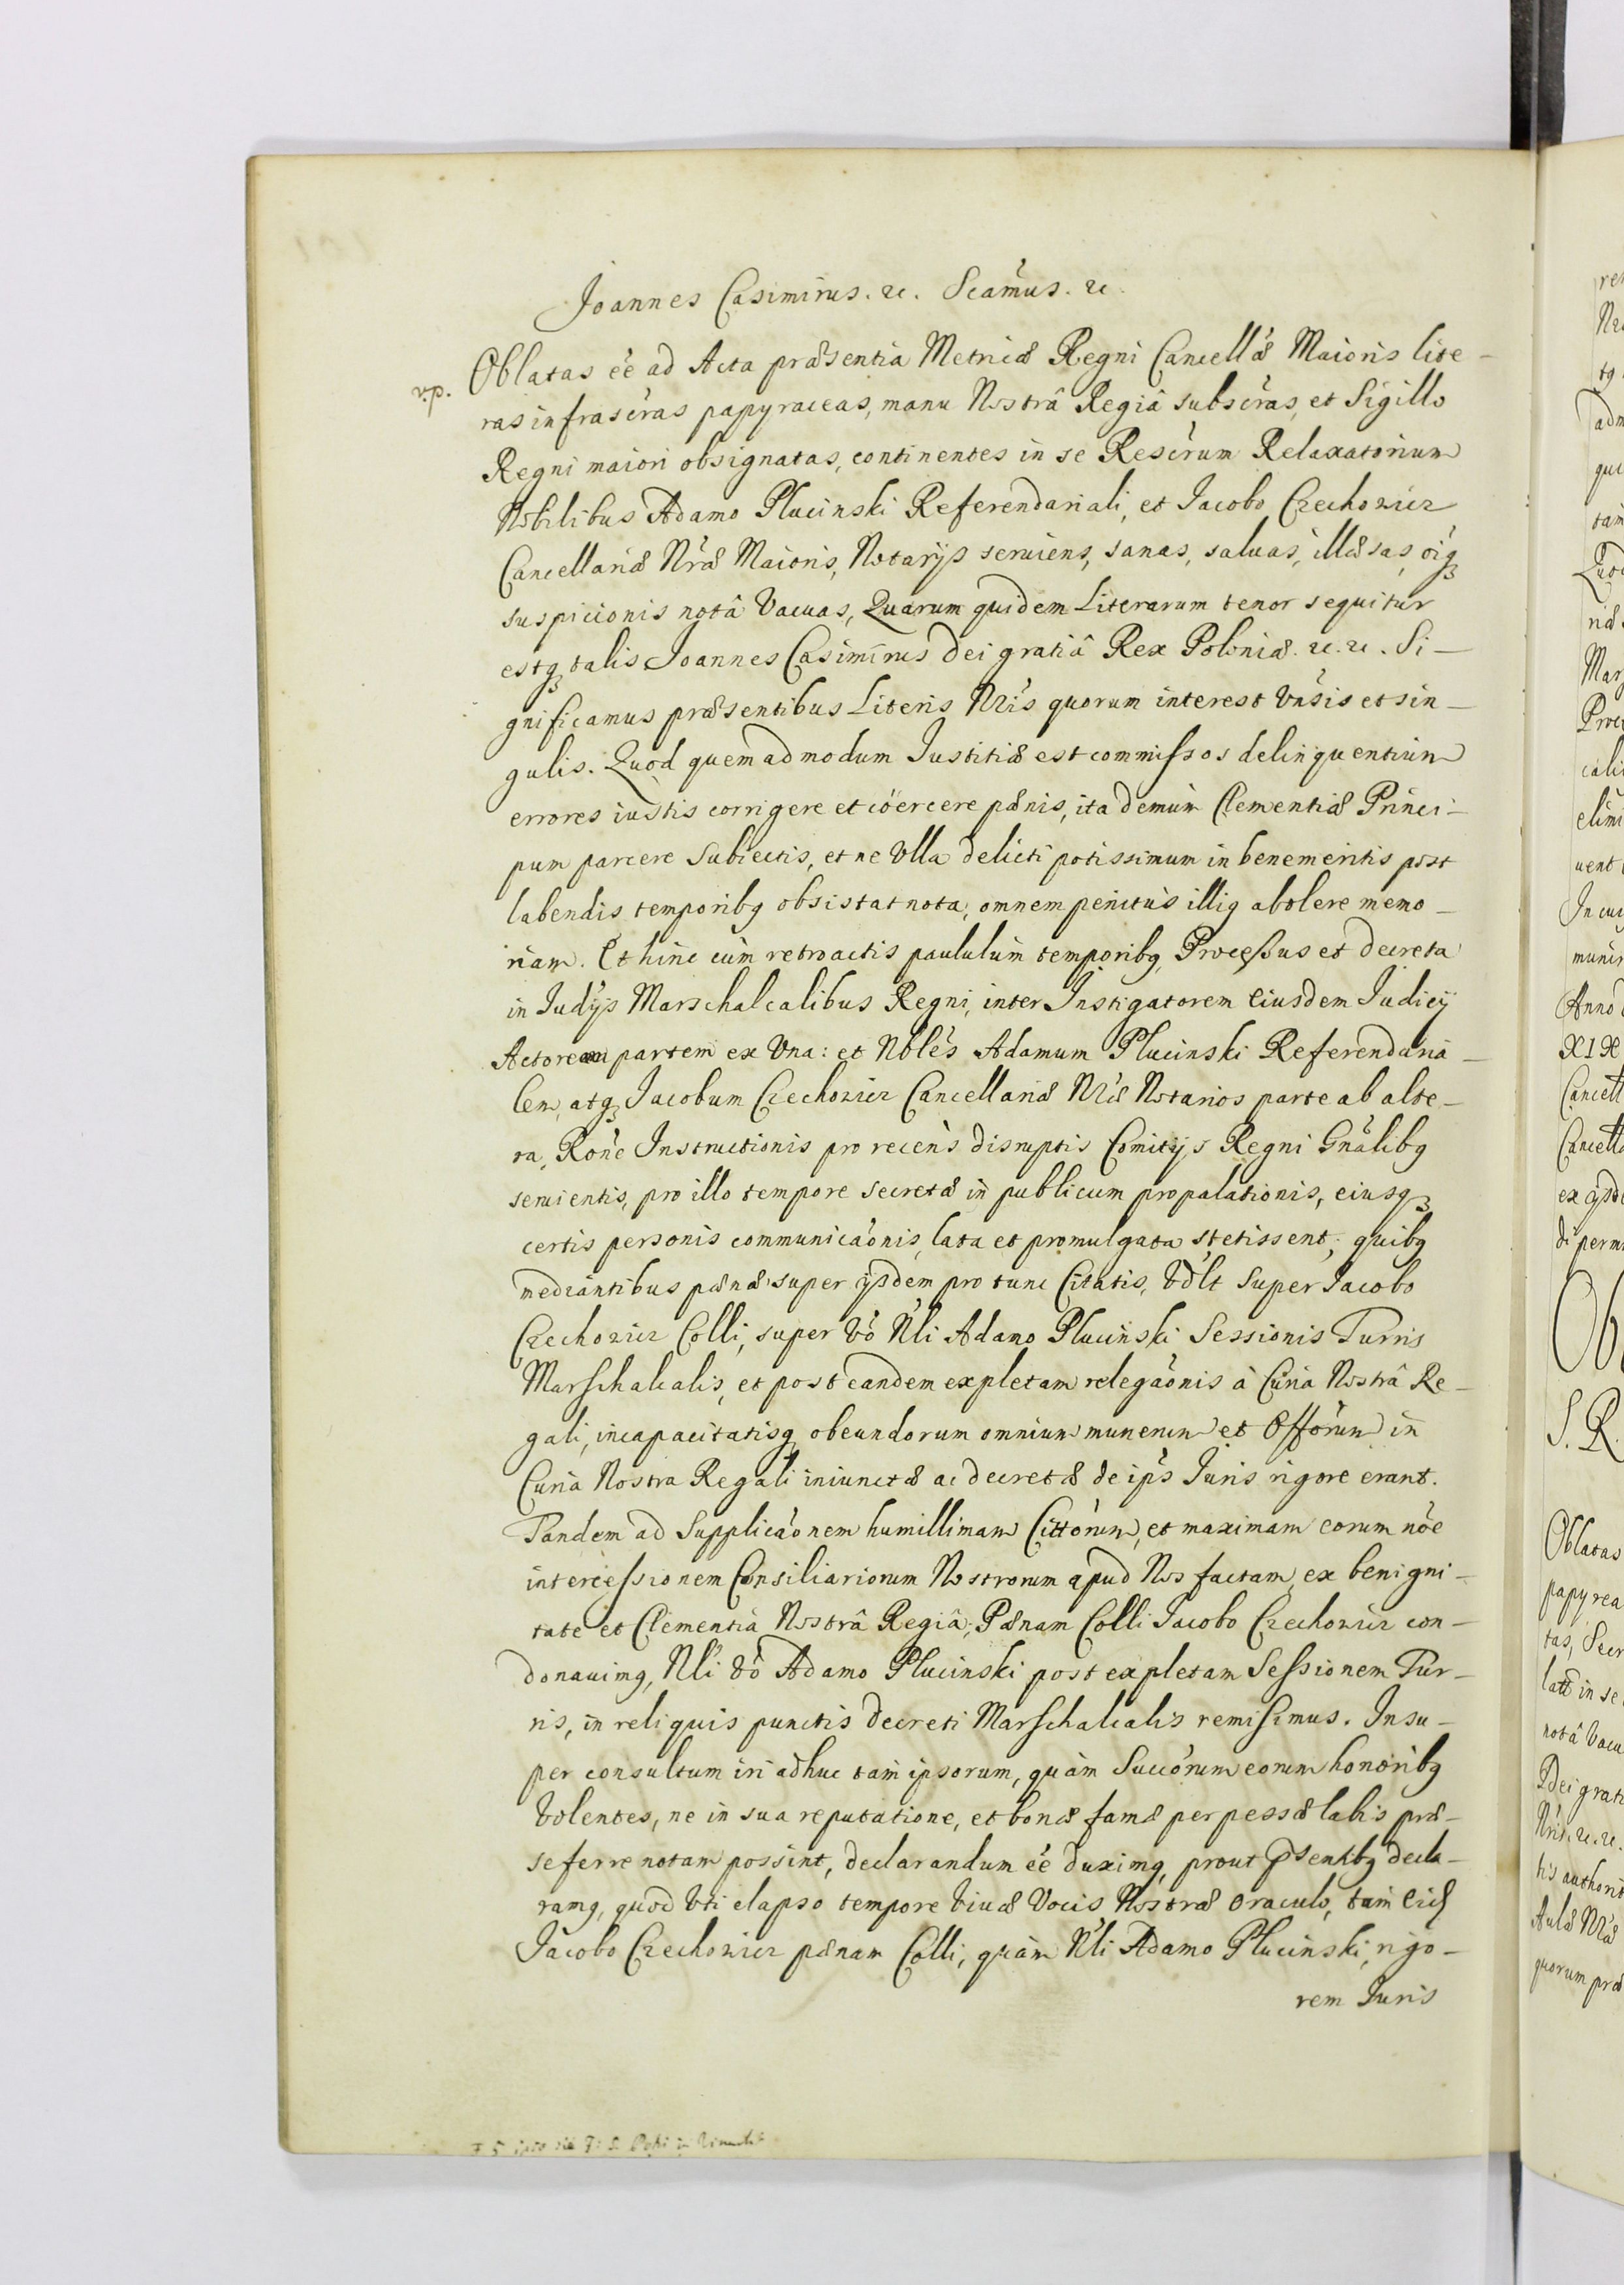 Joannes Casimirus. &c. Scámus. &c.
vp.
Oblatas éé ad Acta præsentia Metricæ Regni Cancellǽ Maioris lite-
ras infrascras papyraceas, manu Nostrâ Regiâ subscras, et Sigillo
Regni maiori obsignatas, continentes in se Rescrum Relaxatorium
Nobilibus Adamo Plucinski Referendariali, et Jacobo Czechowicz
Cancellariæ Nræ Maioris, Notarijs seruiens, sanas, saluas, illæsas, oíq
suspicionis notâ Vacuas, Quarum quidem Literarum tenor sequitur
estq talis Joannes Casimirus Dei gratiâ Rex Poloniæ. &c. &c. Si-
gnificamus præsentibus Literis Nris quorum interest Vnsis et sin-
gulis. Quod quemadmodum Iustitiæ est commissos delinquentium
errores iustis corrigere et coërcere pænis, ita demum Clementiæ Princi-
pum parcere Subiectis, et ne Vlla delicti potissimum in benemeritis post
labendis temporibq obsistat nota, omnem penitùs illiq abolere memo-
riam. Et hinc cùm retroactis paululùm temporibq, Processus et Decreta
in Judijs Marschalcalibus Regni, inter Instigatorem Eiusdem Iudicij
Actorem partem ex Vna: et Nbles Adamum Plucinski Referendaria-
lem, atq Jacobum Czechowicz Cancellariæ Nræ Notarios parte ab alte-
ra, Rone Instructionis pro recens disruptis Comitijs Regni Gnalibq
seruientis, pro illo tempore secretæ in publicum propalationis, eiusq
certis personis communicaonis, lata et promulgata stetissent, quibq
mediantibus pænæ super ijsdem pro tunc Citatis, Vdlt Super Jacobo
Czechowicz Colli, super Vo Nli Adamo Plucinski Sessionis Turris
Marschalcalis, et post eandem expletam relegaonis à Curia Nostrâ Re-
gali, incapacitatisq obeundorum omnium munerum et Offorum in
Curia Nostra Regali iniunctæ ac decretæ de ips Iuris rigore erant.
Tandem ad Supplicaonem humillimam Cittorum, et maximam eorum noe
intercessionem Consiliariorum Nostrorum apud Nos factam, ex benigni-
tate et Clementia Nostrâ Regiâ, Pænam Colli Jacobo Czechowicz con-
donauimq, Nli Vo Adamo Plucinski post expletam Sessionem Tur-
ris, in reliquis punctis Decreti Marschalcalis remisimus. Insu-
per consultum iri adhuc tam ipsorum, quàm Succorum eorum honoribq
Volentes, ne in sua reputatione, et bonæ famæ perpessæ labis præ-
seferre notam possint, declarandum éé duximq, prout psentibq decla-
ramq, quod Vti elapso tempore Viuæ Vocis Nostræ oraculo, tam Eid
Jacobo Czechowicz pænam Colli, quàm Nli Adamo Plucinski, rigo-
rem Iuris